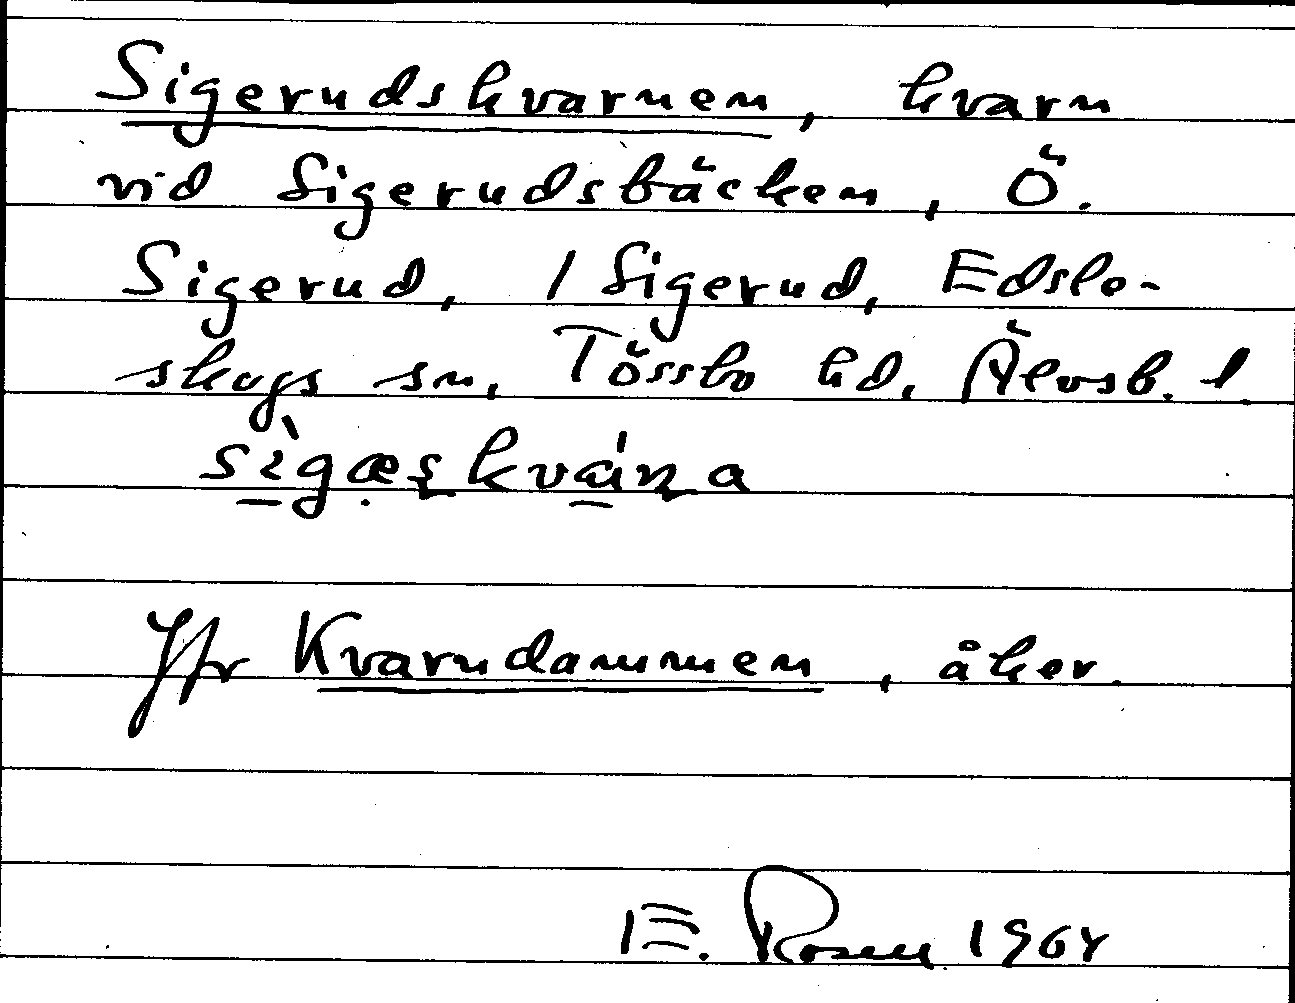 Sigerudskvarnen, kvarn
vid Sigerudsbäcken, Ö.
Sigerud, 1 Sigerud, Edsle-
skogs sn, Tössbo hd, Älvsb. l.
Jfr Kvarndammen, åker.
E. Rosén